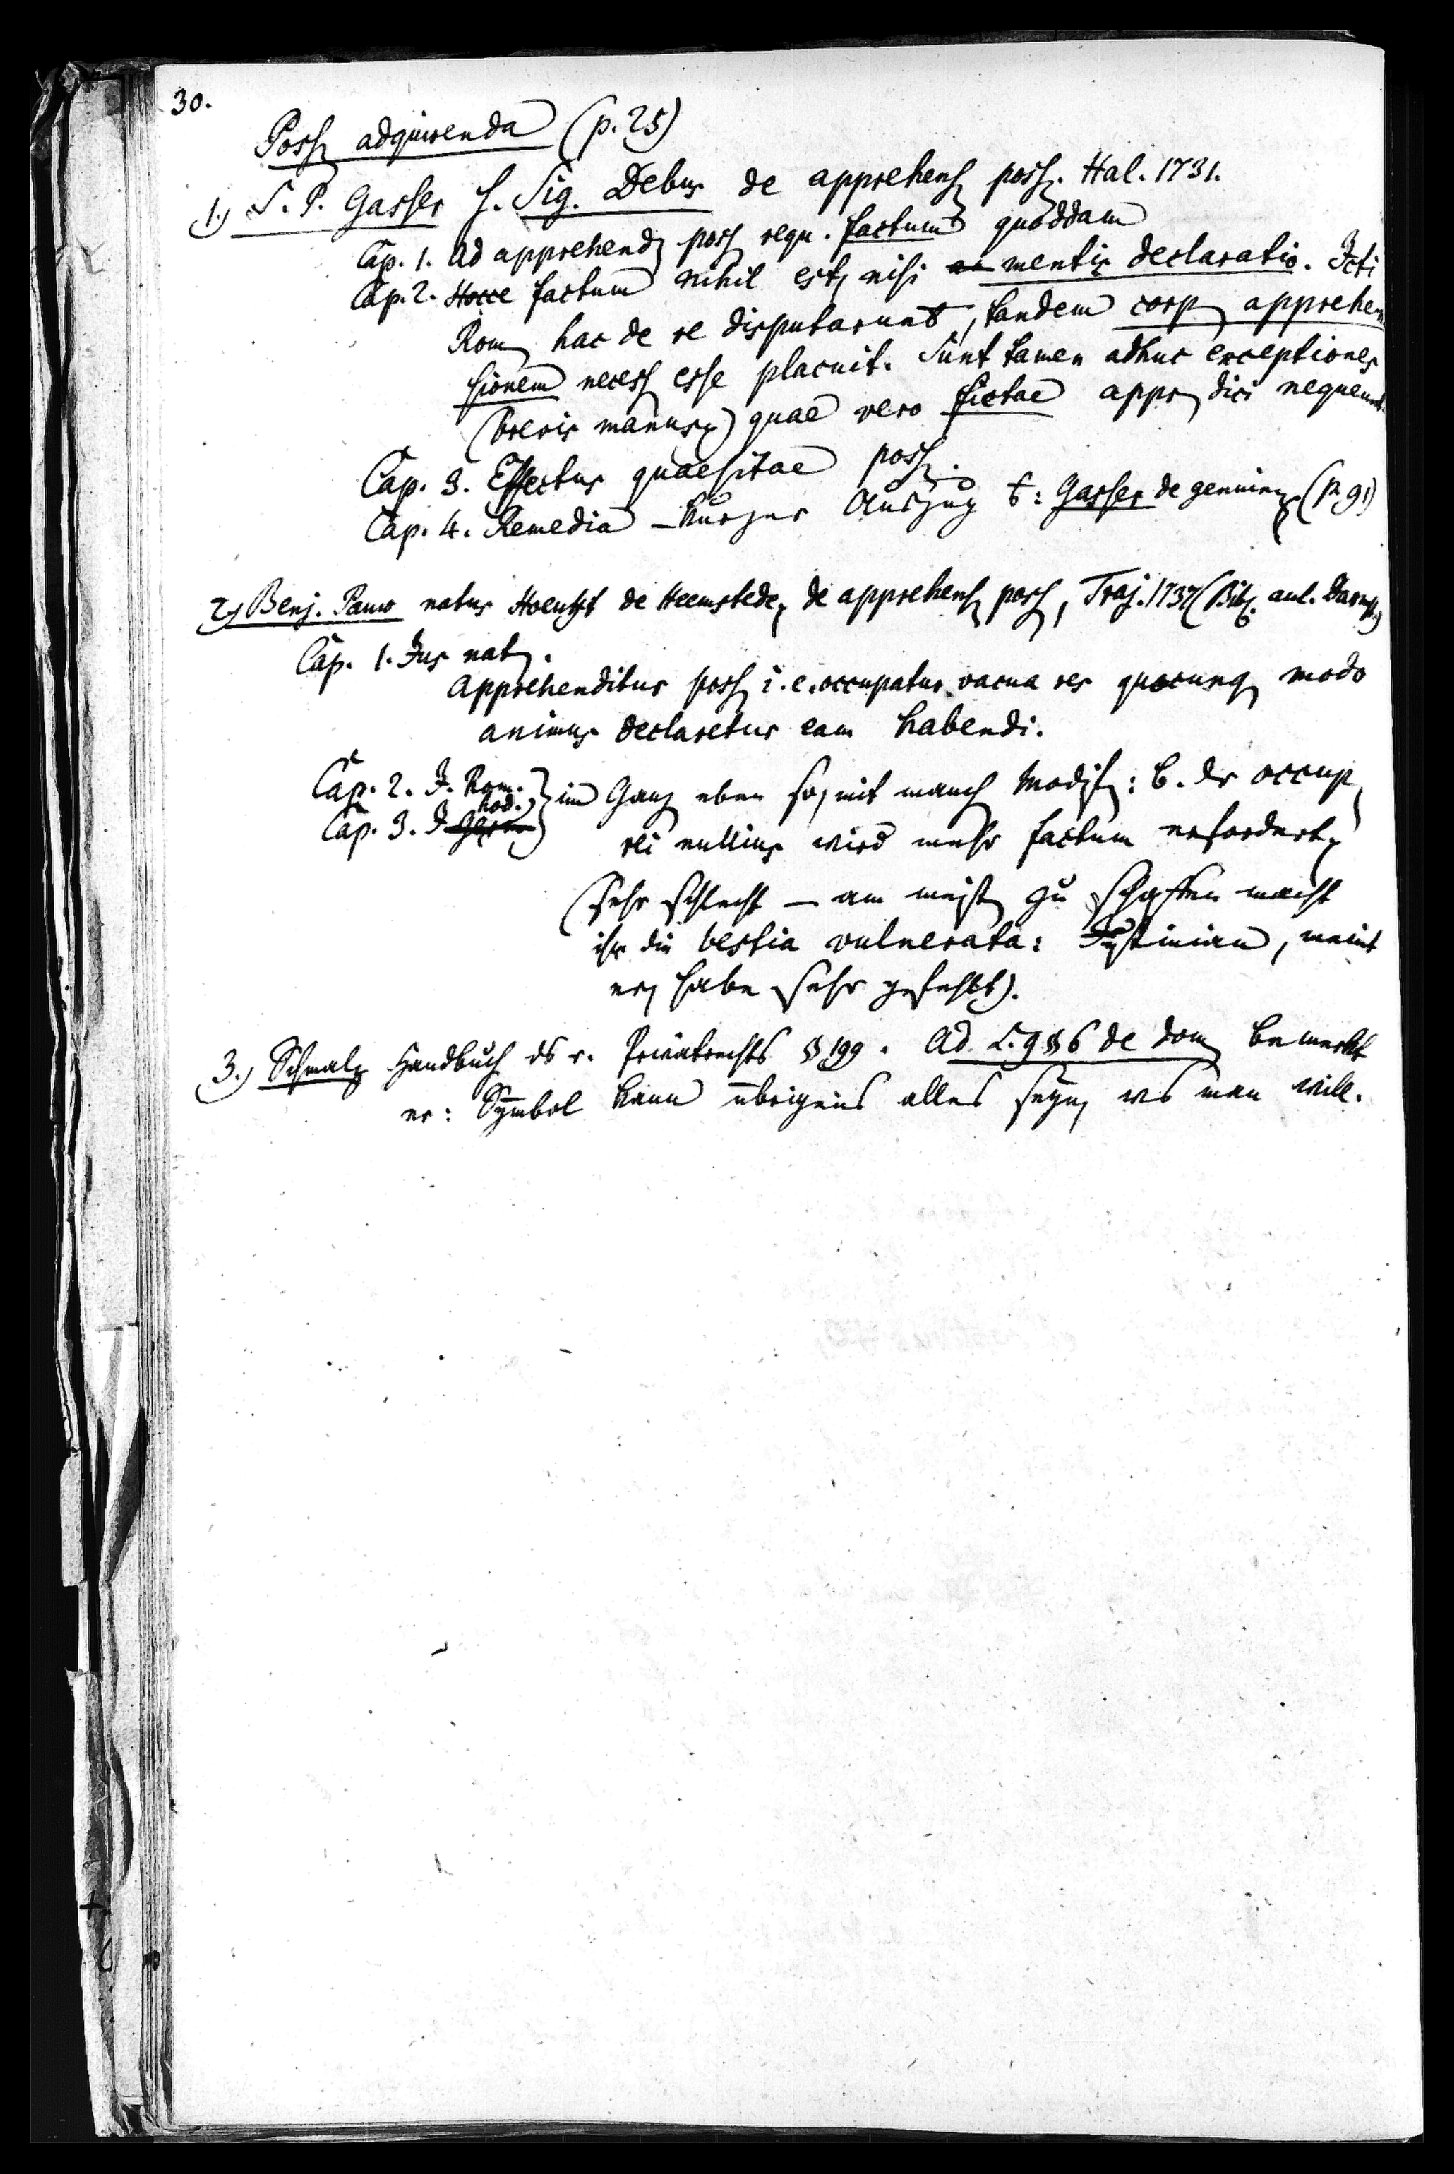 30.
Poss. adquirenda (p. 25)
1.) S. P. Gasser s. Sig. Debus de apprehens. poss. Hal. 1731.
Cap. 1. Ad apprehend. poss. requ. factum quoddam
Cap. 2. Hocce factum nihil est, nisi mentis declaratio. Icti
Rom. hac de re disputarunt, tandem corp. apprehen
sionem necess. esse placuit. Sunt tamen adhuc exceptiones
(brevis manus) quae vero fictae appr. dici nequeunt.
Cap. 3. Effectus quaesitae poss.
Cap. 4. Remedia – kurzer Auszug b: Gasser de genuin. (p. 91)
2.) Benj. Pauw natus Hoeufft de Heemstede, de apprehens. poss., Traj. 1737 (Bibl. aul. Darmst.)
Cap. 1. Jus nat.
Apprehenditur poss. i. e. occupatur vacua res quocunq. modo
animus declaretur eam habendi.
Cap. 2. J. Rom. } im Ganz. eben so, mit manch. Modif.: b. der occup.
Cap. 3. J. hod. } rei nullius wird mehr factum erfordert,
(sehr schlecht – am meist. zu schaffen macht
ihr die bestia vulnerata: Justinian, meint
er, habe sehr gefehlt).
3.) Schmalz Handbuch ds r. Privatrechts § 199. Ad L. 9 § 6 de dom. bemerkt
er: Symbol kann übrigens alles seyn, was man will.